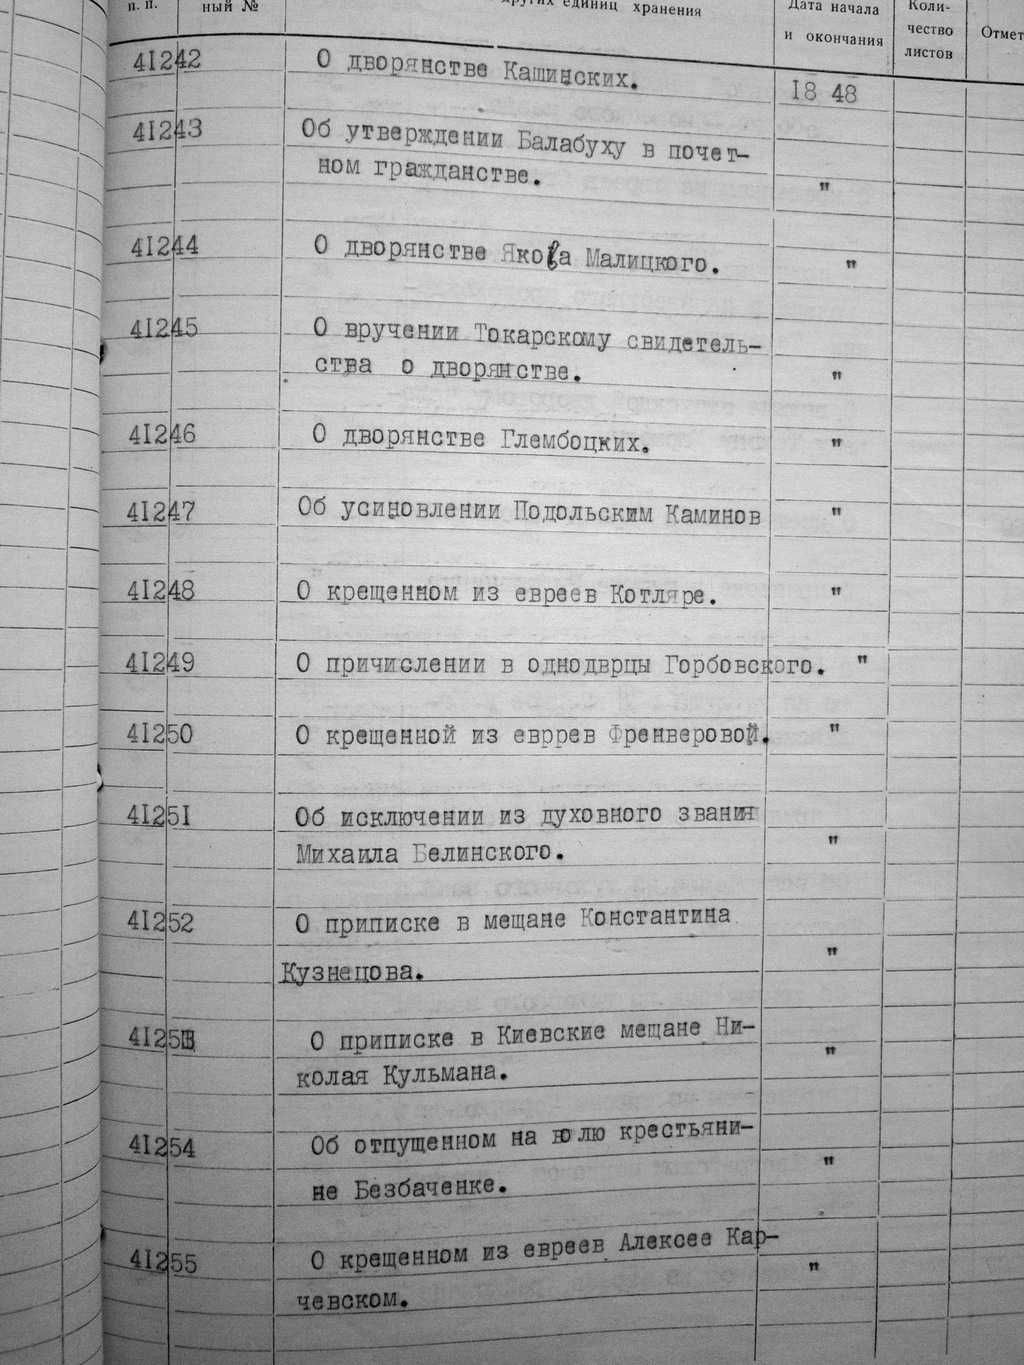 п. п.
ный №
других единиц хранения
Дата начала
и окончания
Коли-
чество
листов
Отмет
41242 О дворянстве Кашинских. 1848
41243 Об утверждении Балабуху в почет-
ном гражданстве. "
41244 О дворянстве Якова Малицкого. "
41245 О вручении Токарскому свидетель-
ства о дворянстве. "
41246 О дворянстве Глембоцких. "
41247 Об усиновлении Подольским Каминов "
41248 О крещенном из евреев Котляре. "
41249 О причислении в однодврцы Горбовского. "
41250 О крещенной из евррев Френверовой. "
41251 Об исключении из духовного звания
Михаила Белинского. "
41252 О приписке в мещане Константина
Кузнецова. "
41253 О приписке в Киевские мещане Ни-
колая Кульмана. "
41254 Об отпущенном на волю крестьяни-
не Безбаченке. "
41255 О крещенном из евреев Алексее Кар-
чевском. "